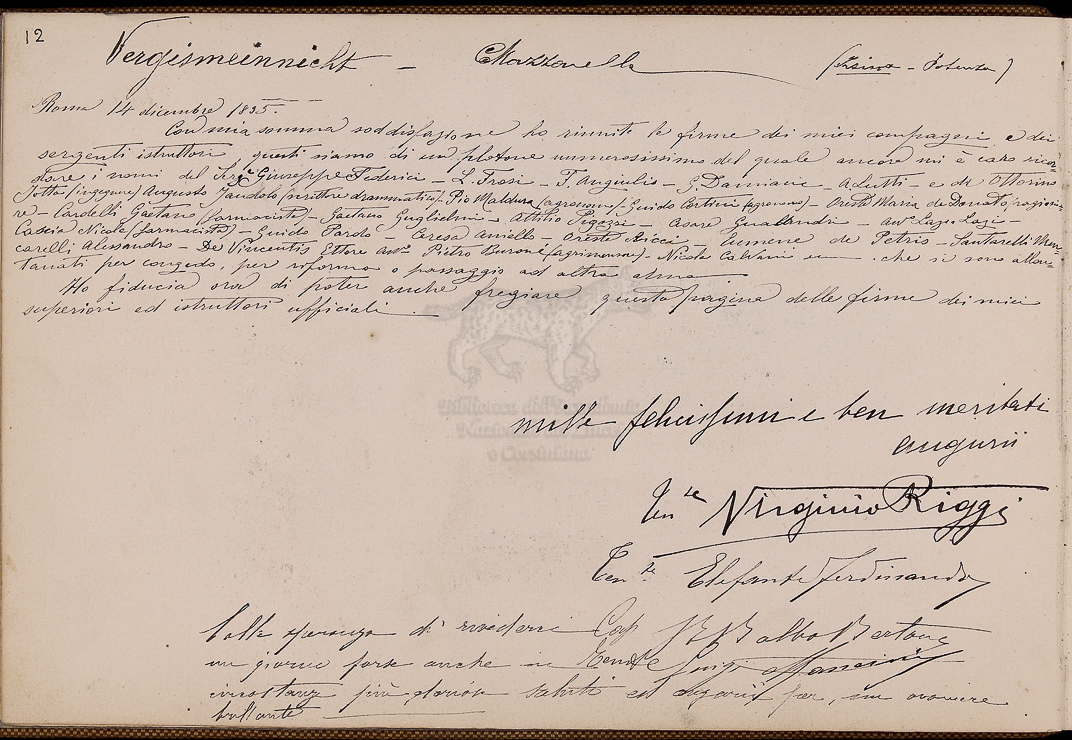 12
Vergismeinnicht – Mazzarella ( – Potenza)
Roma 14 dicembre 1895.
Con mia somma soddisfazione ho riunite le firme dei miei compagni e dei
sergenti istruttori questi siamo di un plotone numerosissimo del quale ancora mi è caro ricor=
dare i nomi del Serg. Giuseppe Federici – L. Frosi – F. Angiulio – G. Damiani – A. Lutti – e di Ottorino
Jotta (ingegnere) Augusto Jandolo (scrittore drammatico) Pio Maldura (agronomo) – Guido Cortini (agronomo) – Oreste Maria de Donato, ragionie=
re – Cardelli Gaetano (farmacista) – Gaetano Guglielmi – Attilio – Cesare Gualandri – Avv. Luigi –
Cascia Nicola (farmacista) – Guido Pardo – Ceresa Aniello – Oreste Ricci – de Petris – Santarelli
Alessandro – De Vincentis Ettore Avv. Pietro Buroni (agrimensore) – Nicola che si sono allon=
tanati per congedo, per riforma o passaggio ad altra arma
Ho fiducia ora di poter anche fregiare questa pagina delle firme dei miei
superiori ed istruttori ufficiali –
Biblioteca dell'Accademia
Nazionale dei Lincei
e Corsiniana
mille felicissimi e ben meritati
augurii
Ten te Virginio Riggi
Ten te Elefante Ferdinando
Colla speranza di rivederci Cap Balbo Bertone
un giorno forse anche in Tente Luigi Mancini
circostanze più saluti ed augurii per un avvenire
brillante